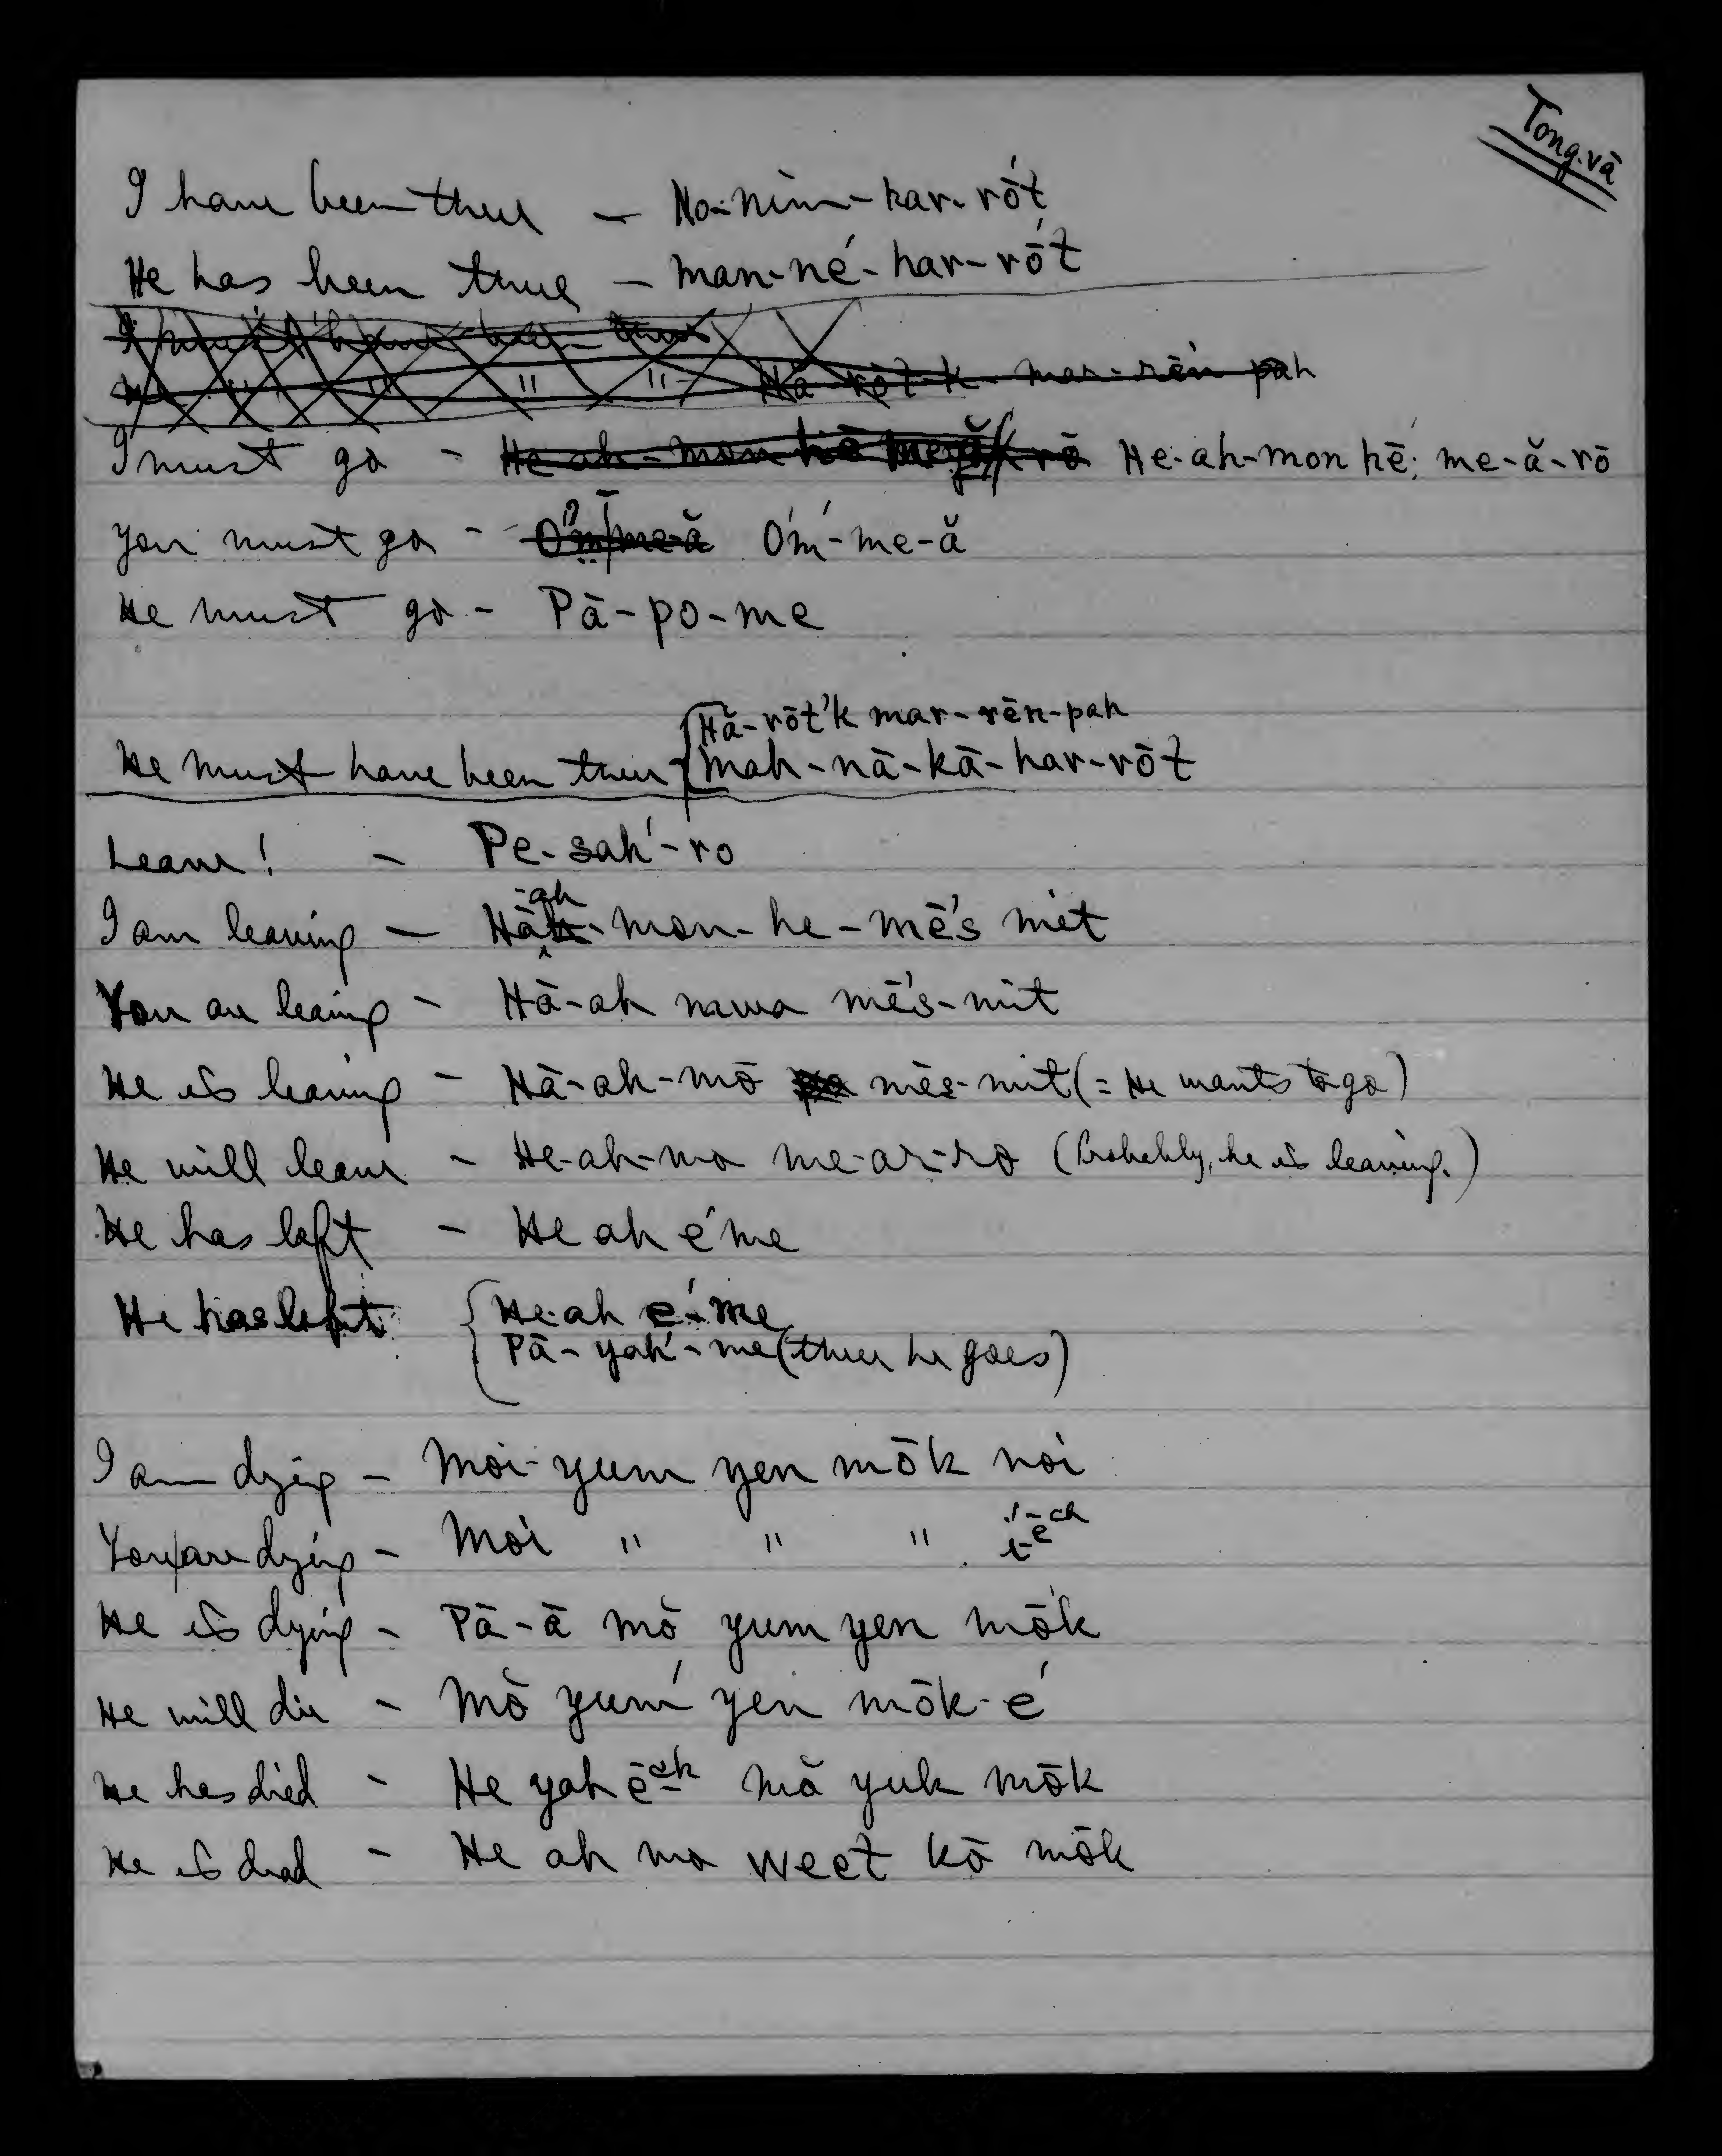 Tong-vā
I have been there — No-nim-har-rṓt
He has been there — Man-né-har-rṓt
" " Hā-rōt-k mar-rēn pah
I must go - He-ah-mon hē me-ă-rō
You must go - Óḿ-me-ă
He must go - Pā-po-me
Hă-rōt'k mar-rēn-pah
He must have been there { Mah-nā-kā-har-rōt
Leave! - Pe-sah́-ro
I am leaving — Hā-ah-mon-he-mē's mit
You are leaving - Hā-ah mē's-mit
He is leaving - Hā-ah-mō mēs-mit (= He wants to go)
He will leave - He-ah-mo me-ar-ro (Probably, he is leaving.)
He has left - He ah é me
He has left { He-ah é-me
Pā-yah́-me (there he goes)
I am dying - Moi-yum yen mōk noi
You are dying - Moi " " "
He is dying - Pā-ā mŏ yum yen mōk
He will die - Mŏ yuḿ yen mōk-é
He has died - He yah ē-ah mă yuk mōk
He is dead - He ah mo weet kō mōk